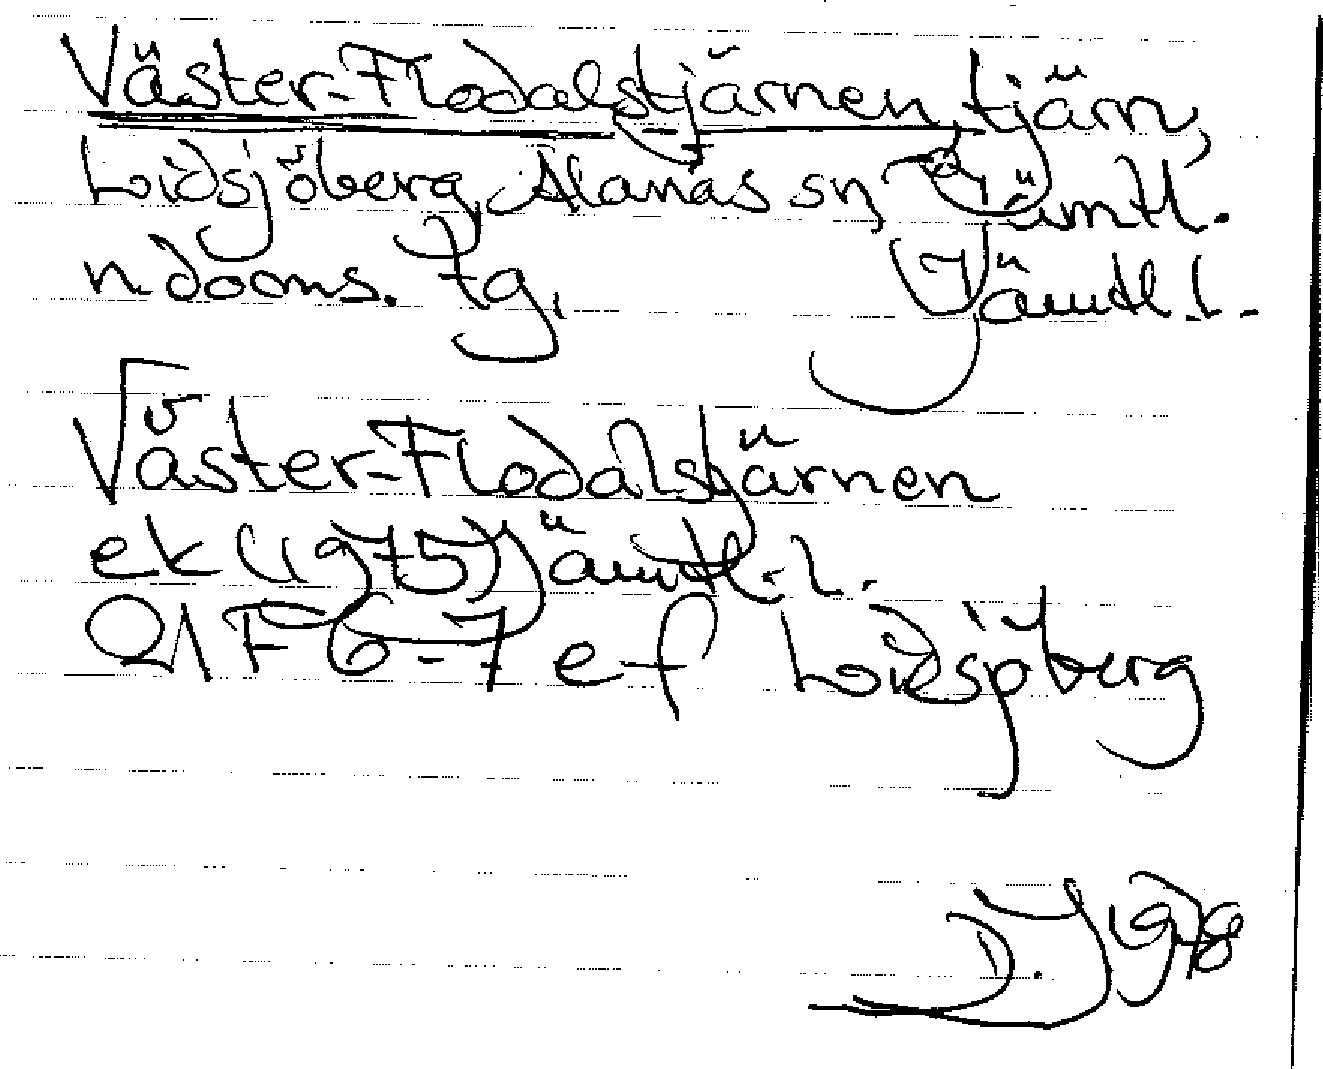 Väster-Flodalstjärnen, tjärn,
Lidsjöberg, Alanäs sn, Jämtl.
n. dooms. tg. Jämtl. l.
Väster-Flodalstjärnen
ek (1975) Jämtl. l.
21 F 6-7 e f Lidsjöberg
D. J 1978